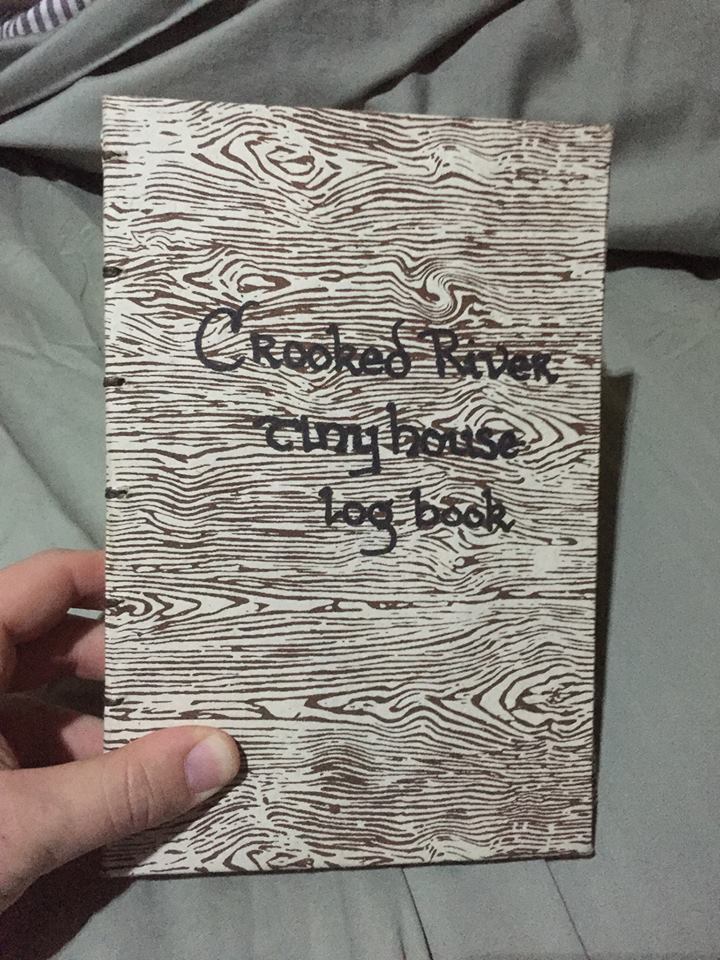 Crooked River
tinyhouse
log book